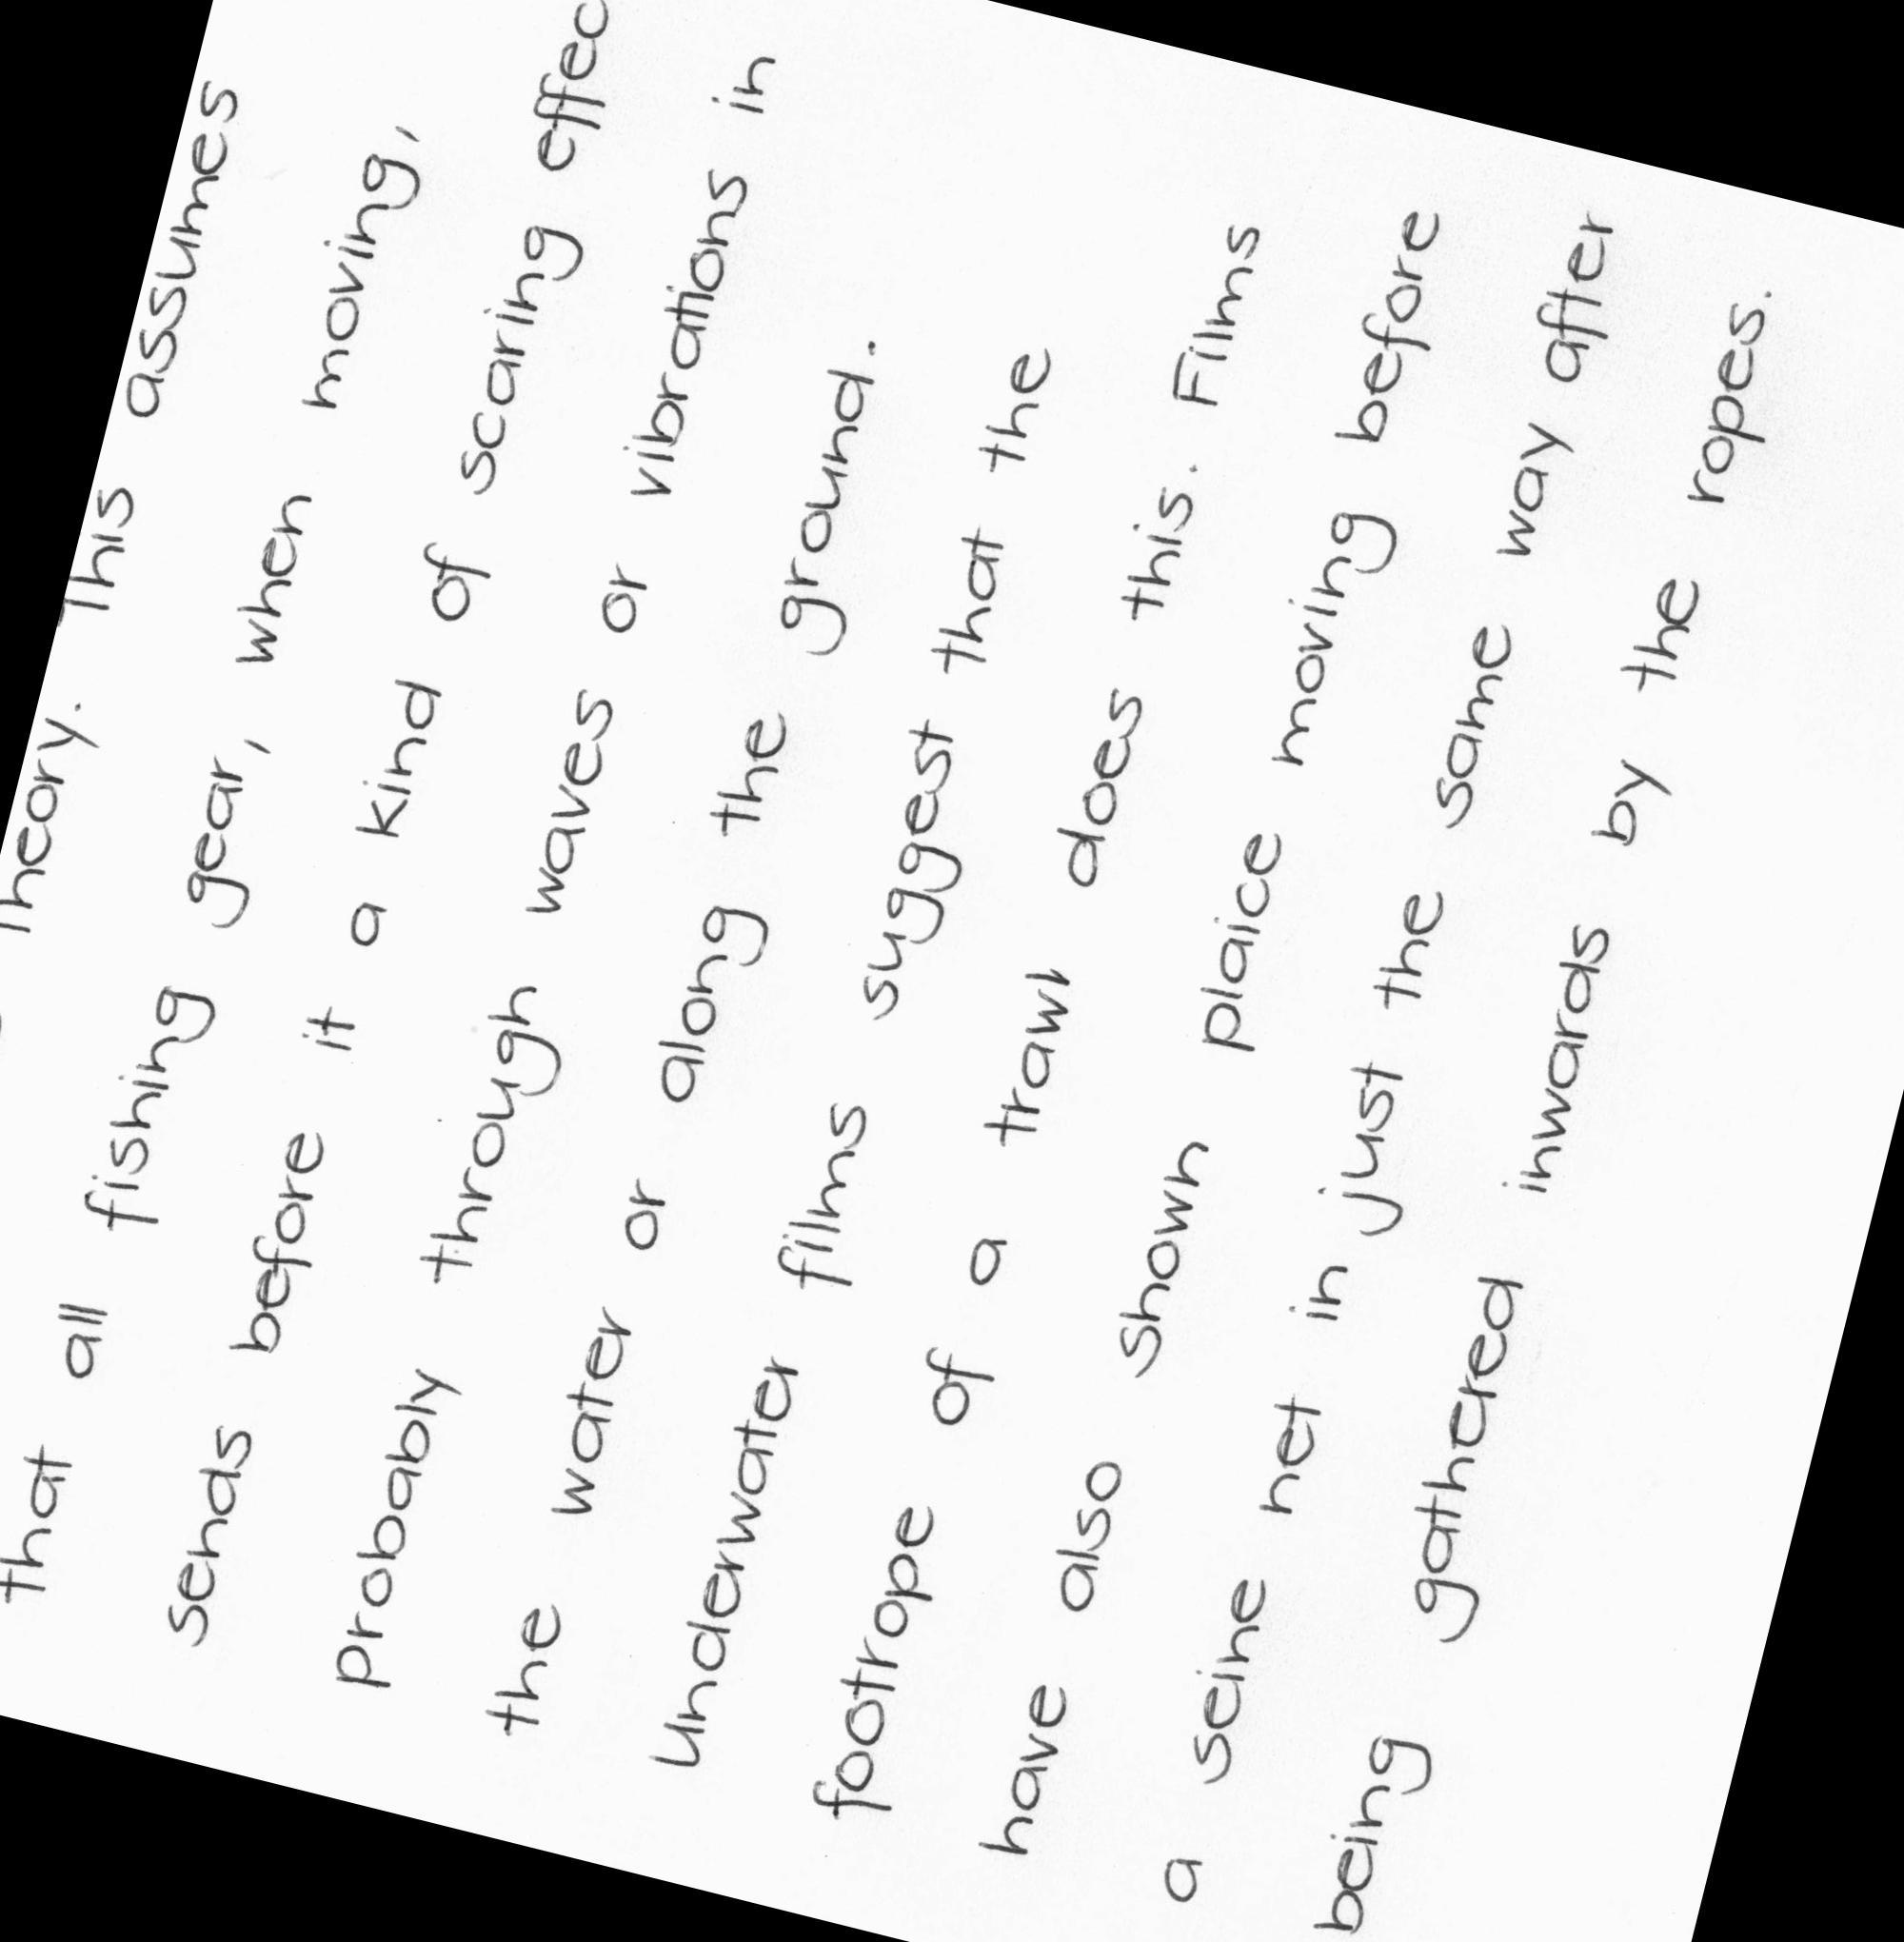 theory. This assumes
that all fishing gear, when moving,
sends before it a kind of scaring effec
probably through waves or vibrations in
the water or along the ground.
Underwater films suggest that the
footrope of a trawl does this. Films
have also shown plaice moving before
a seine net in just the same way after
being gathered inwards by the ropes.